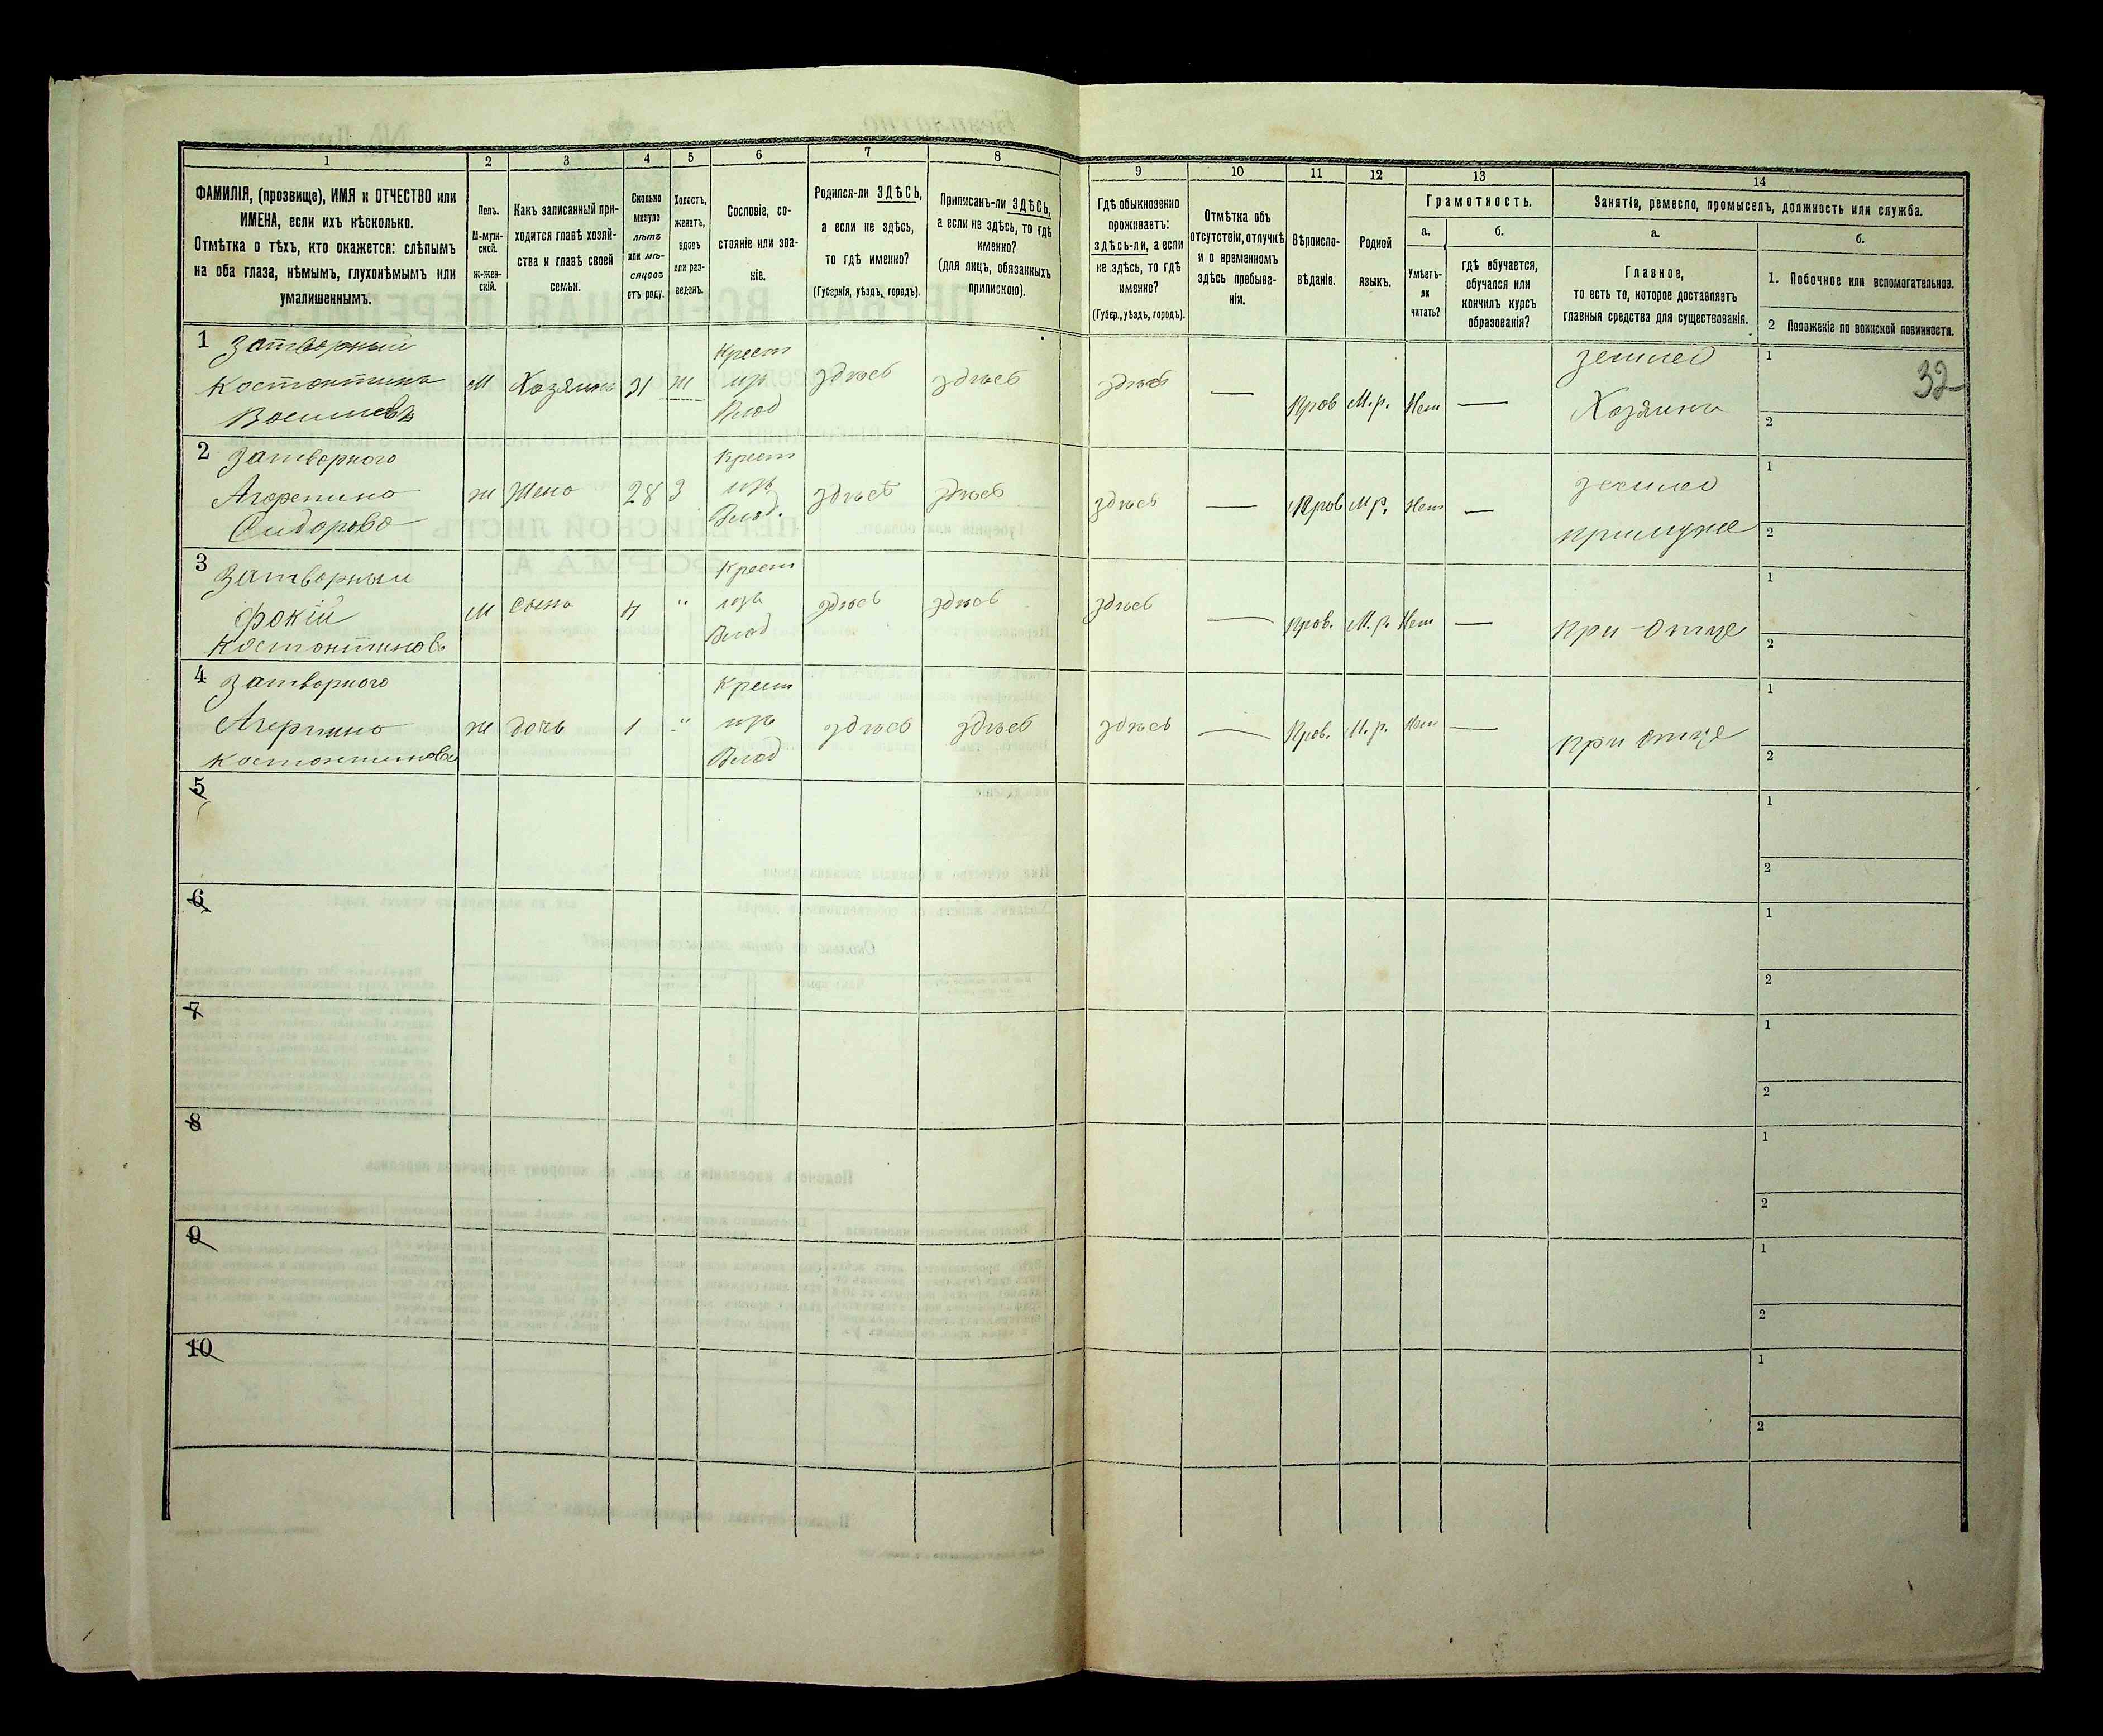 1
2
3
4
5
6
7
8
9
10
11
12
13
14
ФАМИЛІЯ, (прозвище), ИМЯ и ОТЧЕСТВО или
ИМЕНА, если ихъ нѣсколько.
Отмѣтка о тѣхъ, кто окажется: слѣпымъ
на оба глаза, нѣмымъ, глухонѣмымъ или
умалишеннымъ.
Полъ.
М-муж-
ской.
Ж-жен-
скій.
Какъ записанный при-
ходится главѣ хозяй-
ства и главѣ своей
семьи.
Сколько
минуло
лѣтъ
или мѣ-
сяцевъ
отъ роду.
Холостъ,
женатъ,
вдовъ
или раз-
веденъ.
Сословіе, со-
стояніе или зва-
ніе.
Родился-ли ЗДѢСЬ,
а если не здѣсь,
то гдѣ именно?
(Губернія, уѣздъ, городъ).
Приписанъ-ли ЗДѢСЬ,
а если не здѣсь, то гдѣ
именно?
(для лицъ, обязанныхъ
припискою).
Гдѣ обыкновенно
проживаетъ:
здѣсь-ли, а если
не здѣсь, то гдѣ
именно?
(Губер., уѣздъ, городъ).
Отмѣтка объ
отсутствіи, отлучкѣ
и о временномъ
здѣсь пребыва-
ніи.
Вѣроиспо-
вѣданіе.
Родной
языкъ.
Грамотность.
а.
Умѣетъ-
ли
читать?
б.
гдѣ обучается,
обучался или
кончилъ курсъ
образованія?
Занятіе, ремесло, промыселъ, должность или служба.
а.
Главное,
то есть то, которое доставляетъ
главныя средства для существованія.
б.
1. Побочное или вспомогательное.
2 Положеніе по воинской повинности.
1 Затворный
Костонтинъ
М Хозяинъ 31 ж
Крест
изъ
Влад
здѣсь здѣсь здѣсь — Прав М.р. Нет —
землед
Хозяинъ
1
2
32
2 Затворного
Сидорова
ж жена 28 З
Крест
изъ
Влад.
здѣсь здѣсь здѣсь — Прав М р. Нет —
землед
при муже
1
2
3 Затворный
Фокій
Костонтиновъ
М сынъ 4 "
Крест
изъ
Влад
здѣсь здѣсь здѣсь — Прав. М.р. Нет —
при - отце
1
2
4 Затворного
Костонтинова
ж дочь 1 "
Крест
изъ
Влад
здѣсь здѣсь здѣсь — Прав. М.р. Нет —
при отце
1
2
5
1
2
6
1
2
7
1
2
8
1
2
9
1
2
10
1
2